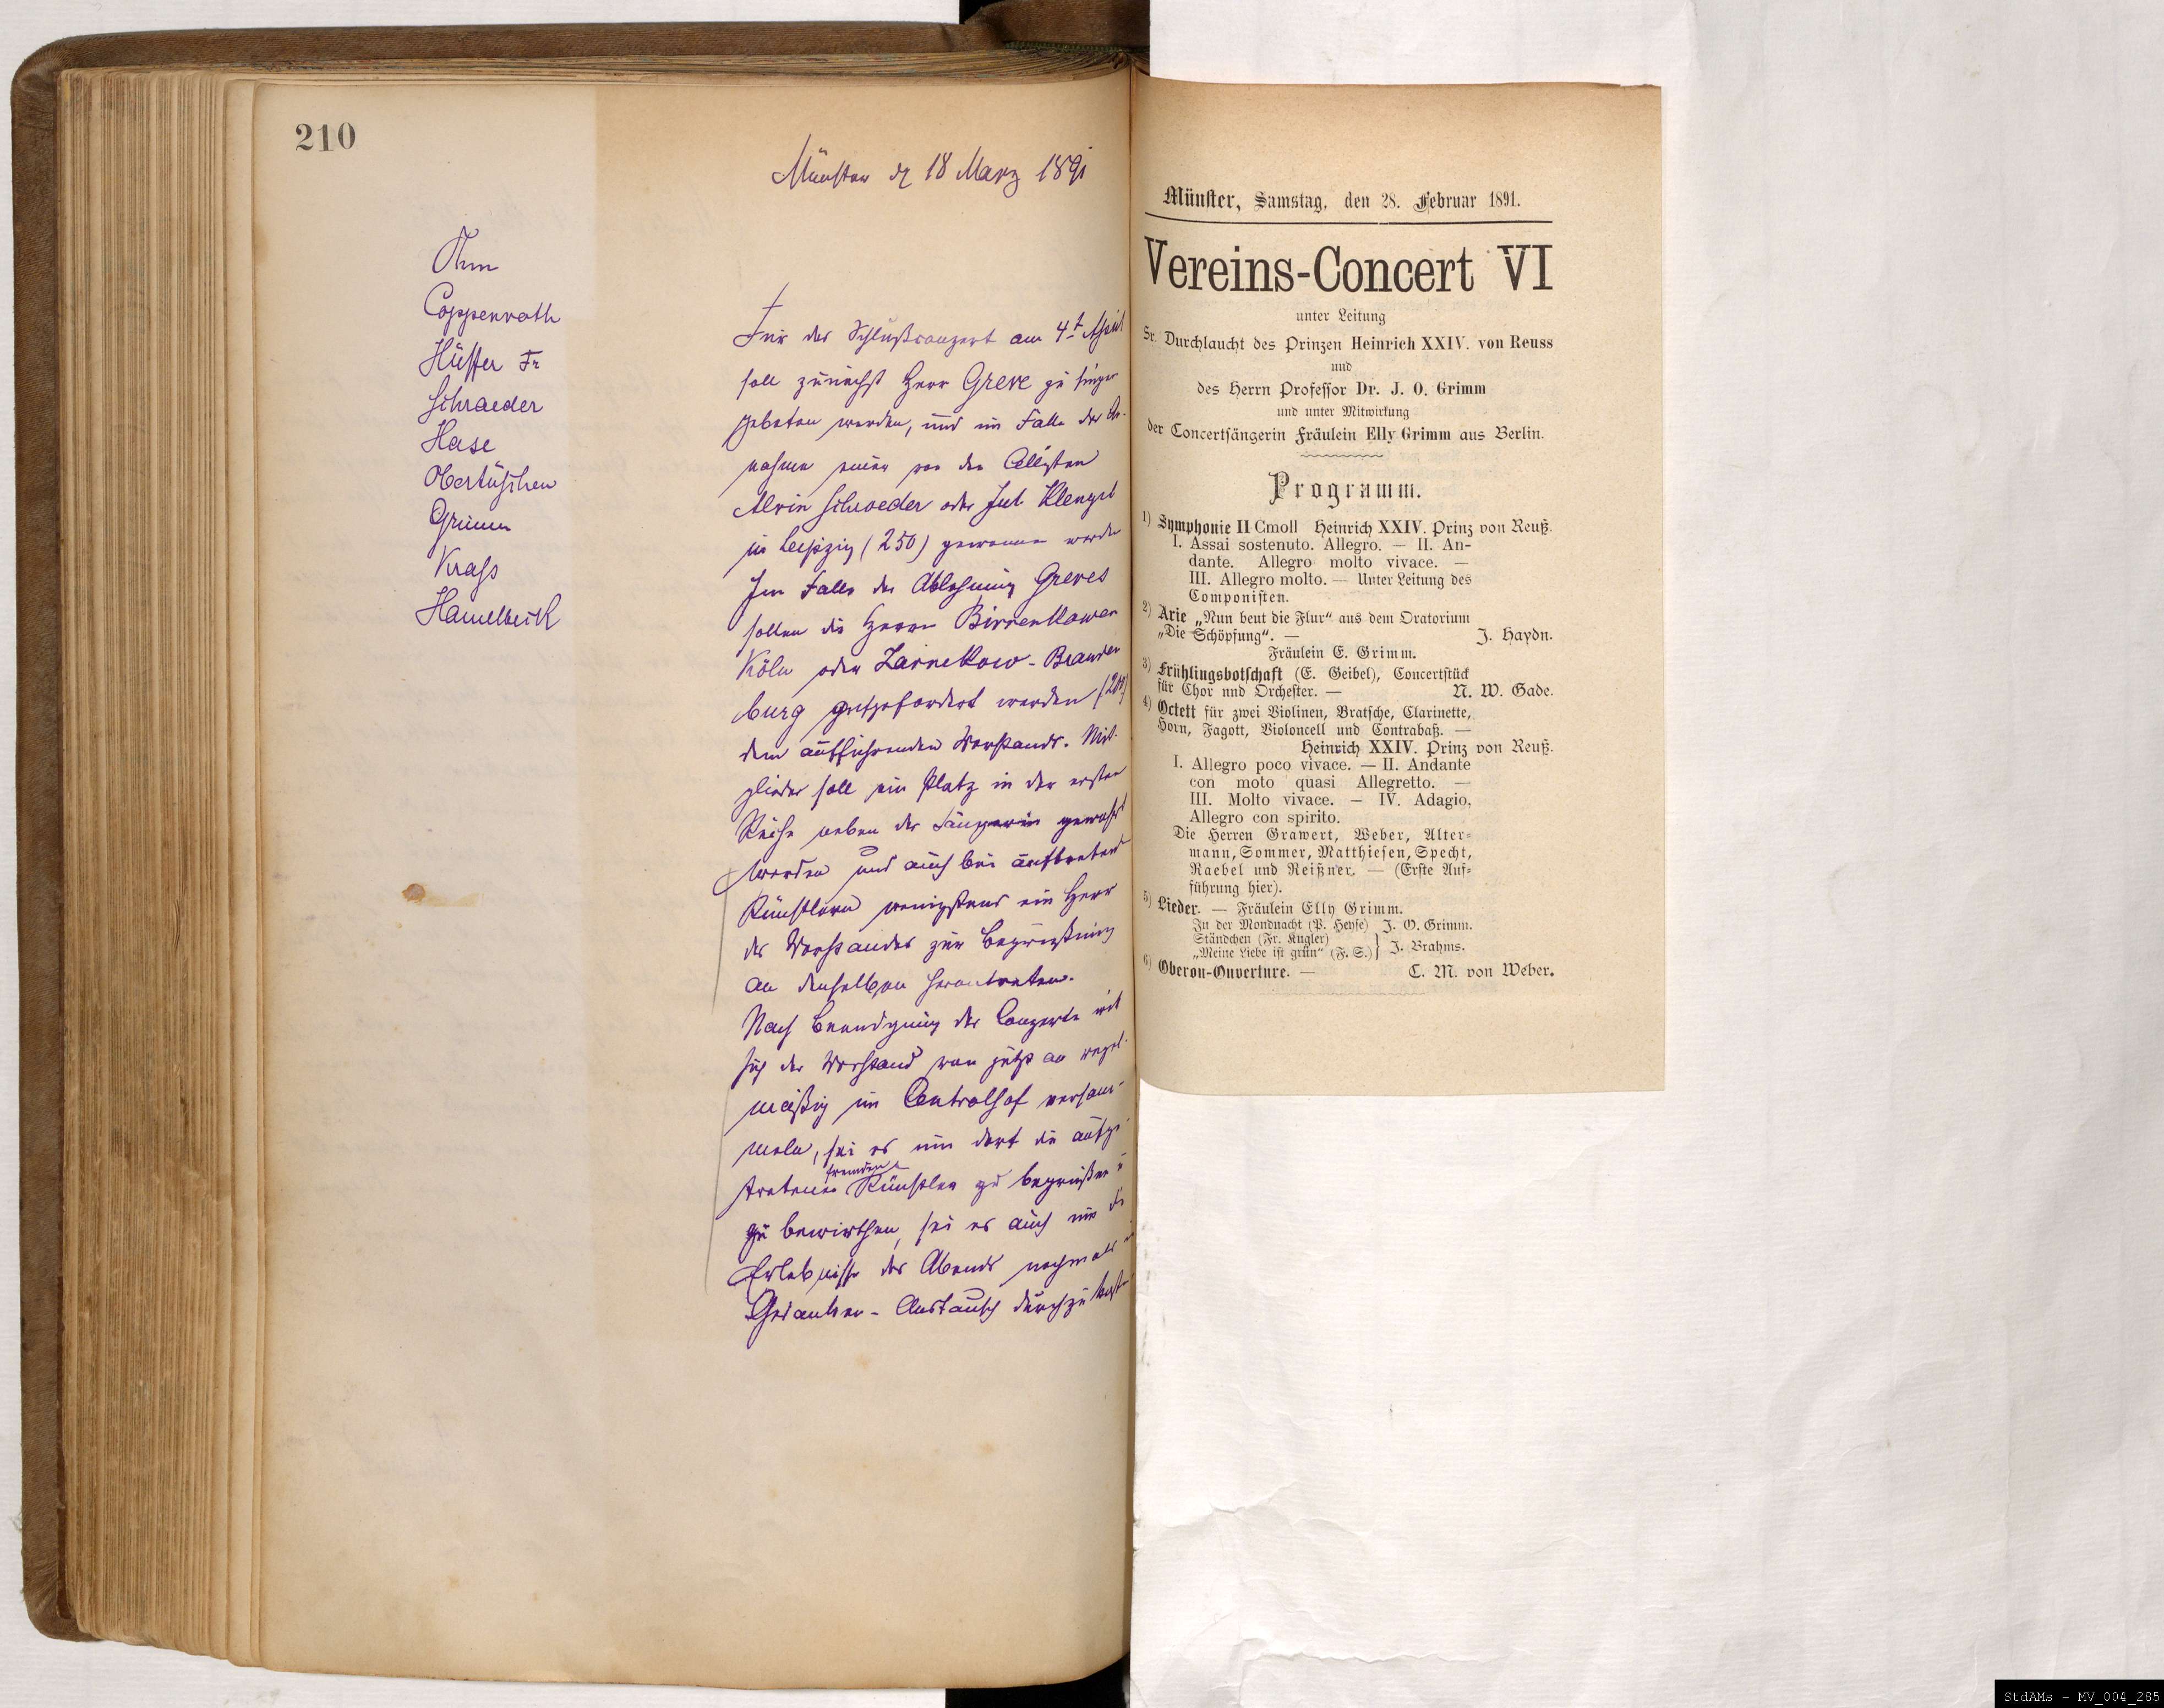 210
Münster d 18 März 1891
Ohm
Coppenrath
Hüffer Fr
Schraeder
Hase
Obertüschen
Grimm
Krass
Hamelbeck
Für das Schlußconzert am 4t April
soll zunächst Herr Greve zu singen
gebeten werden, und im Falle der An-
nahme einer von den Cellisten
Alvin Schroeder oder Jul Klengel
in Leipzig (250) gewonnen werden
Im Falle der Ablehnung Greves
sollen die Herren Birrenkoven
Köln oder Zarnekow-Branden
burg aufgefordert werden (200)
dem aufführenden Vorstands-Mit-
gliede soll ein Platz in der ersten
Reihe neben der Sängerin gewahrt
werden und auch bei auftretend
Künstlern wenigstens ein Herr
des Vorstandes zur Begrüßung
an denselben herantreten.
Nach Beendigung der Conzerte wird
sich der Vorstand von jetzt an regel-
mäßig im Centralhof versam-
meln, sei es um dort die aufge
tretenen fremden Künstler zu begrüßen u
zu bewirthen, sei es auch um die
Erlebnisse des Abends nochmals
Gedanken-Austausch durchzukosten
Münster, Samstag, den 28. Februar 1891.
Vereins-Concert VI
unter Leitung
Sr. Durchlaucht des Prinzen Heinrich XXIV. von Reuss
und
des Herrn Professor Dr. J. O. Grimm
und unter Mitwirkung
der Concertsängerin Fräulein Elly Grimm aus Berlin.
Programm.
1) Symphonie II Cmoll Heinrich XXIV. Prinz von Reuß.
I. Assai sostenuto. Allegro. — II. An-
dante. Allegro molto vivace. —
III. Allegro molto. — Unter Leitung des
Componisten.
2) Arie „Nun beut die Flur“ aus dem Oratorium
„Die Schöpfung“. — J. Haydn.
Fräulein E. Grimm.
3) Frühlingsbotschaft (E. Geibel), Concertstück
für Chor und Orchester. — N. W. Gade.
4) Octett für zwei Violinen, Bratsche, Clarinette,
Horn, Fagott, Violoncell und Contrabaß. —
Heinrich XXIV. Prinz von Reuß.
I. Allegro poco vivace. — II. Andante
con moto quasi Allegretto. —
III. Molto vivace. — IV. Adagio,
Allegro con spirito.
Die Herren Grawert, Weber, Alter-
mann, Sommer, Matthiesen, Specht,
Raebel und Reißner. — (Erste Auf-
führung hier).
5) Lieder. — Fräulein Elly Grimm.
In der Mondnacht (P. Heyse) J. O. Grimm.
Ständchen (Fr. Kugler)
„Meine Liebe ist grün“ (F. S.) } J. Brahms.
6) Oberon-Ouverture. — C. M. von Weber.
StdAMs - MV_004_285